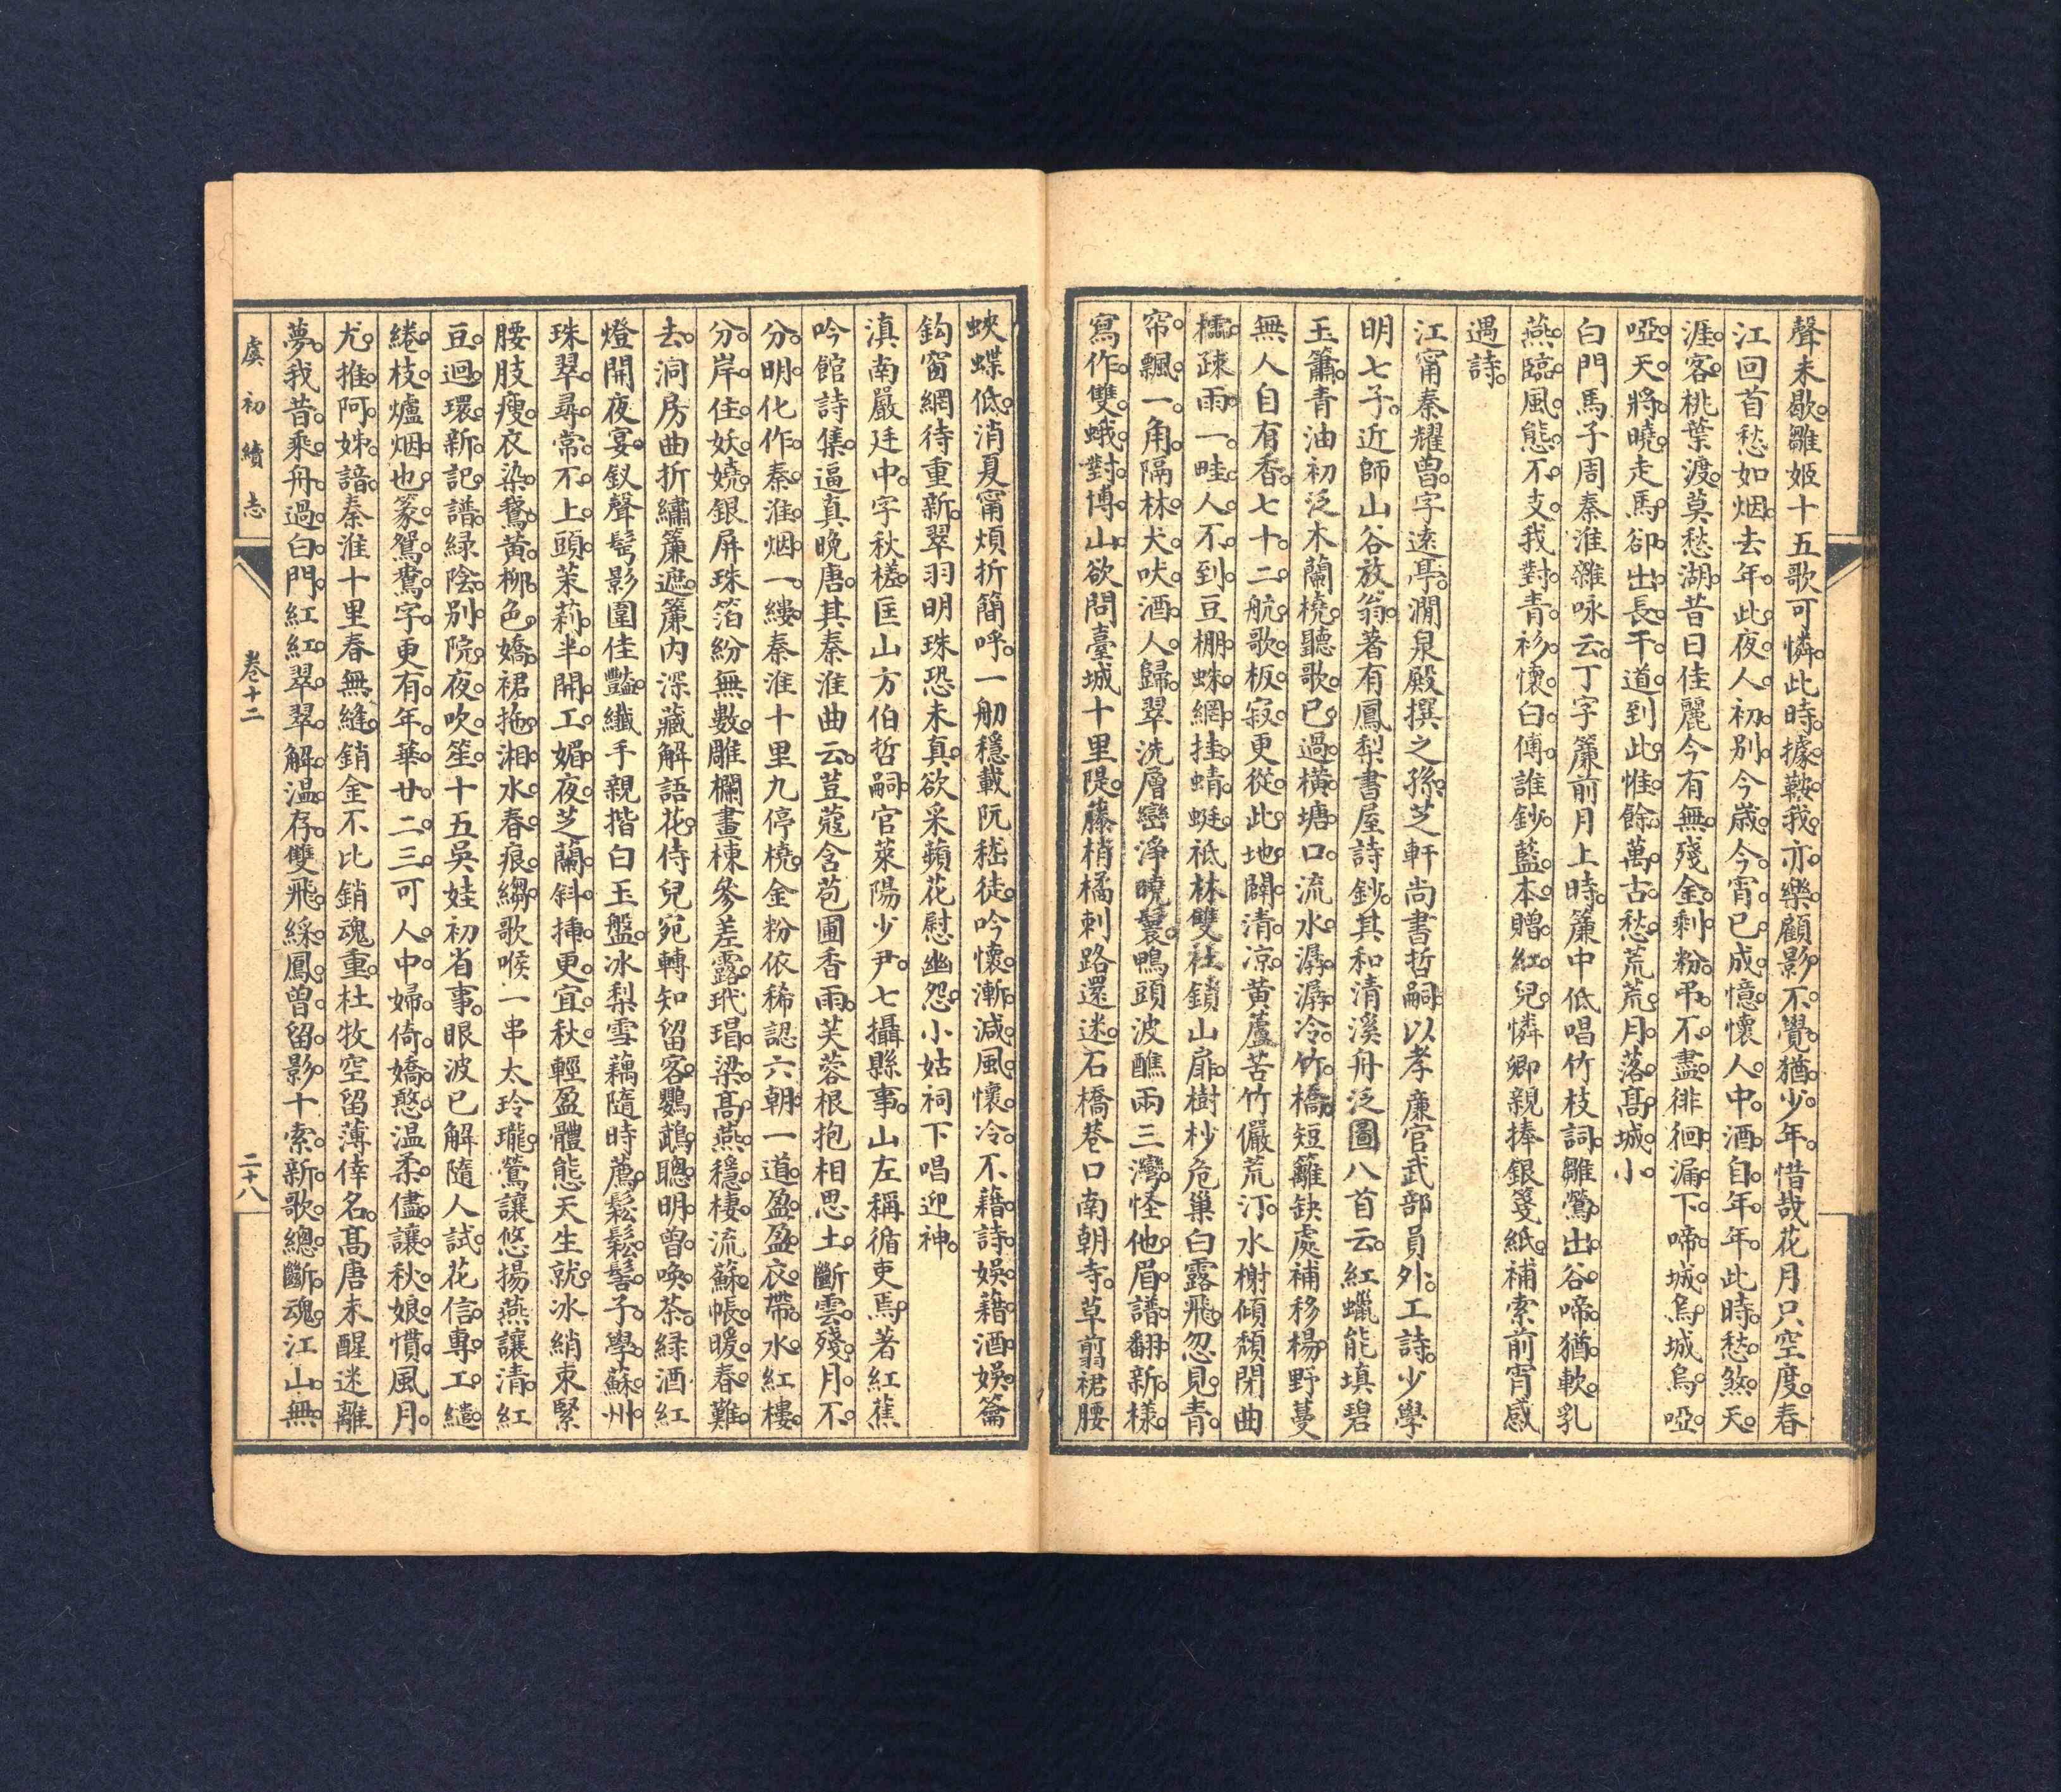 聲未歇。雛姬十五歌可憐。此時據鞍我亦樂。顧影不覺猶少年。惜哉花月只空度。春
江回首愁如烟。去年此夜人初别。今歲今宵已成憶。懷人中酒自年年。此時愁煞天
涯客。桃葉渡。莫愁湖。昔日佳麗今有無。殘金剩粉弔不盡。徘徊漏下啼城烏。城烏啞
啞天將曉。走馬卻出長干道。到此惟餘萬古愁。荒荒月落髙城小。
白門馬子周秦淮雜咏云。丁字簾前月上時。簾中低唱竹枝詞。雛鶯出谷啼猶軟。乳
燕臨風態不支。我對青衫懷白傅。誰鈔藍本贈紅兒。憐卿親捧銀箋紙。補索前宵感
遇詩。
江甯秦耀曾。字遠亭。澗泉殿撰之孫。芝軒尚書哲嗣。以孝廉官武部員外。工詩。少學
明七子。近師山谷放翁。著有鳳梨書屋詩鈔。其和清溪舟泛圖八首云。紅蠟能填碧
玉簫。青油初泛木蘭橈。聽歌已過橫塘口。流水潺潺冷竹橋。短籬缺處補移楊。野蔓
無人自有香。七十二航歌板寂。更從此地闢清凉。黄蘆苦竹儼荒汀。水榭傾頹閉曲
櫺。疎雨一畦人不到。豆棚蛛網挂蜻蜓。祗林雙社鎖山扉。樹杪危巢白露飛。忽見青
帘飄一角。隔林犬吠酒人歸。翠洗層巒淨曉鬟。鴨頭波醮兩三灣。怪他眉譜翻新樣。
寫作雙蛾對博山。欲問臺城十里隄。藤梢橘刺路還迷。石橋巷口南朝寺。草翦裙腰
蛺蝶低。消夏甯煩折簡呼。一舠穩載阮嵇徒。吟懷漸減風懷冷。不藉詩娛藉酒娛。籥
鈎窗網待重新。翠羽明珠恐未真。欲采蘋花慰幽怨。小姑祠下唱迎神。
滇南嚴廷中。字秋槎。匡山方伯哲嗣。官萊陽少尹。七攝縣事。山左稱循吏焉。著紅蕉
吟館詩集。逼真晚唐。其秦淮曲云。荳蔻含苞圃香雨。芙蓉根抱相思土。斷雲殘月不
分明。化作秦淮烟一縷。秦淮十里九停橈。金粉依稀認六朝。一道盈盈衣帶水。紅樓
分岸住妖嬈。銀屏珠箔紛無數。雕欄畫棟參差露。玳瑁梁髙燕穩棲。流蘇帳暖春難
去。洞房曲折繡簾遮。簾内深藏解語花。侍兒宛轉知留客。鸚鵡聰明曾喚茶。緑酒紅
燈開夜宴。釵聲髩影圍佳豔。纖手親揩白玉盤。冰梨雪藕隨時薦。鬆鬆髻子學蘇州。
珠翠尋常不上頭。茉莉半開工媚夜。芝蘭斜揷更宜秋。輕盈體態天生就。冰綃束緊
腰肢瘦。衣染鵞黄柳色嬌。裙拖湘水春痕縐。歌喉一串太玲瓏。鶯讓悠揚燕讓清。紅
豆迴環新記譜。緑陰别院夜吹笙。十五吳娃初省事。眼波已解隨人試。花信專工繾
綣枝。爐烟也篆鴛鴦字。更有年華廿二三。可人中婦倚嬌憨。温柔儘讓秋娘慣。風月
尤推阿姊諳。秦淮十里春無縫。銷金不比銷魂重。杜牧空留薄倖名。髙唐未醒迷離
夢。我昔乘舟過白門。紅紅翠翠解温存。雙飛綵鳳曾留影。十索新歌總斷魂。江山無
虞初續志
卷十二
二十八